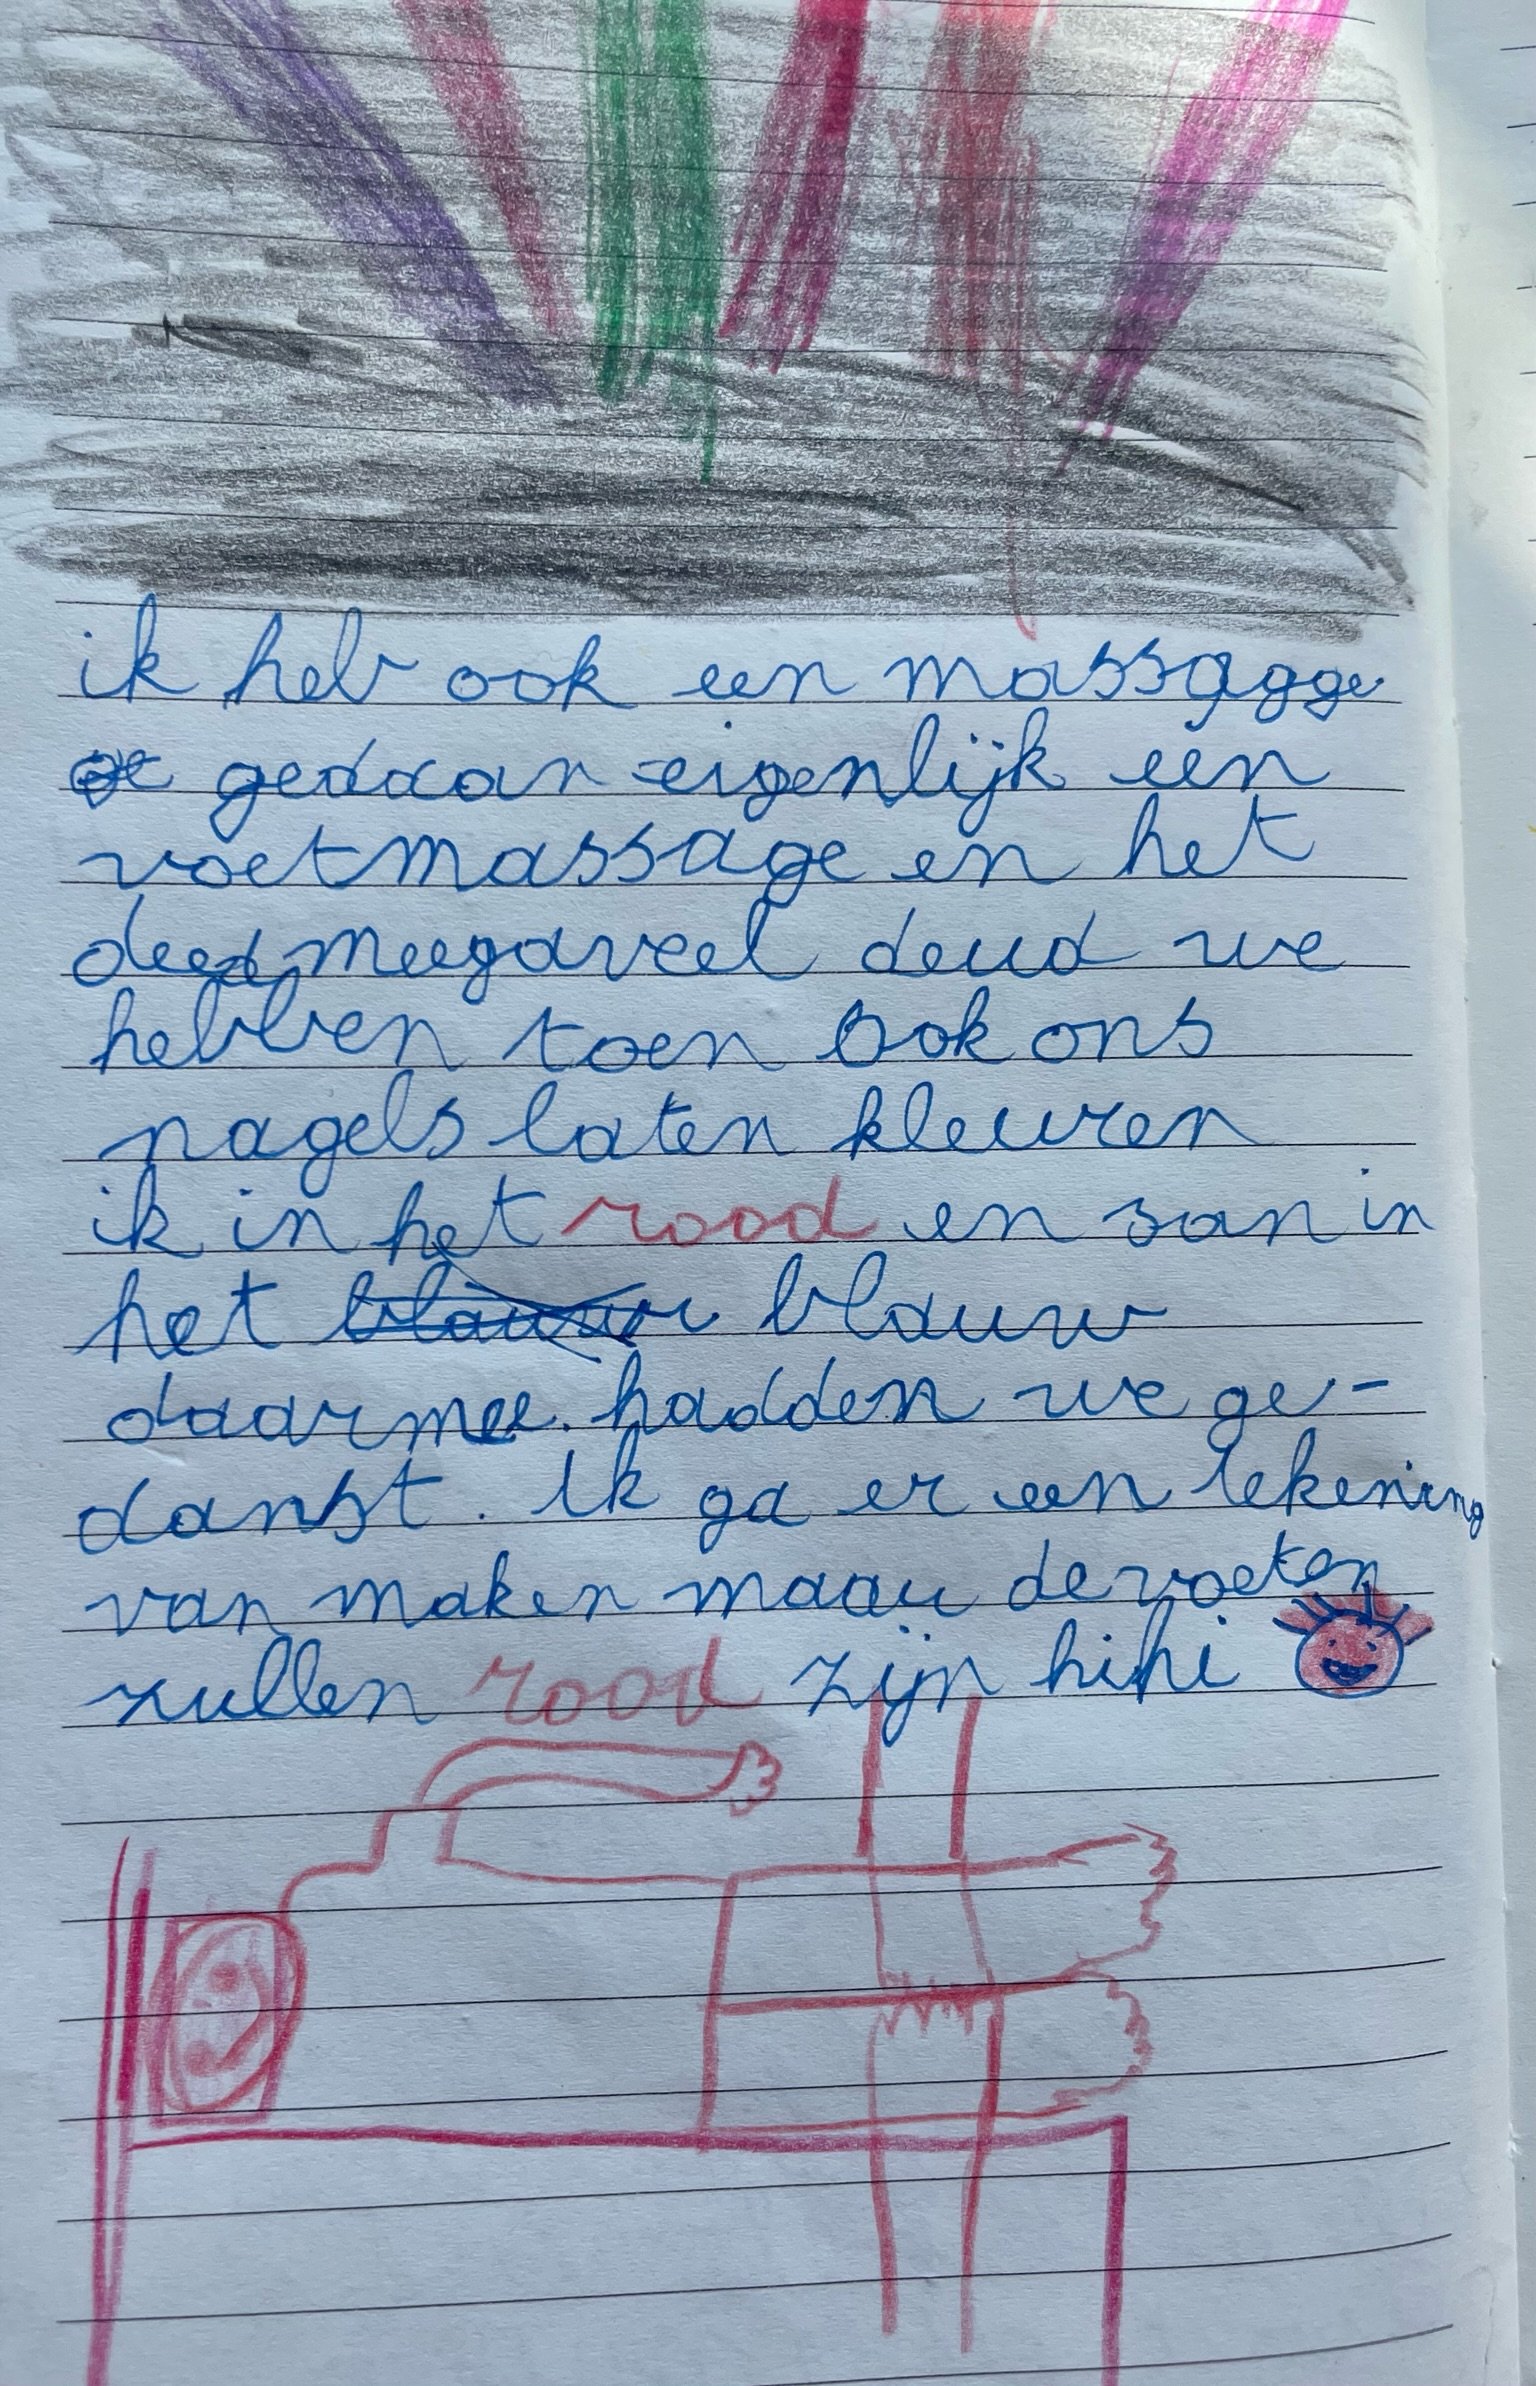 ik heb ook een massagge
gedaan eigenlijk een
voetmassage en het
deed meegaveel deud we
hebben toen ook ons
nagels laten kleuren
ik in het rood en san in
het blauw
daarmee hadden we ge-
danst. Ik ga er een tekening
van maken maar de voeten
zullen rood zijn hihi